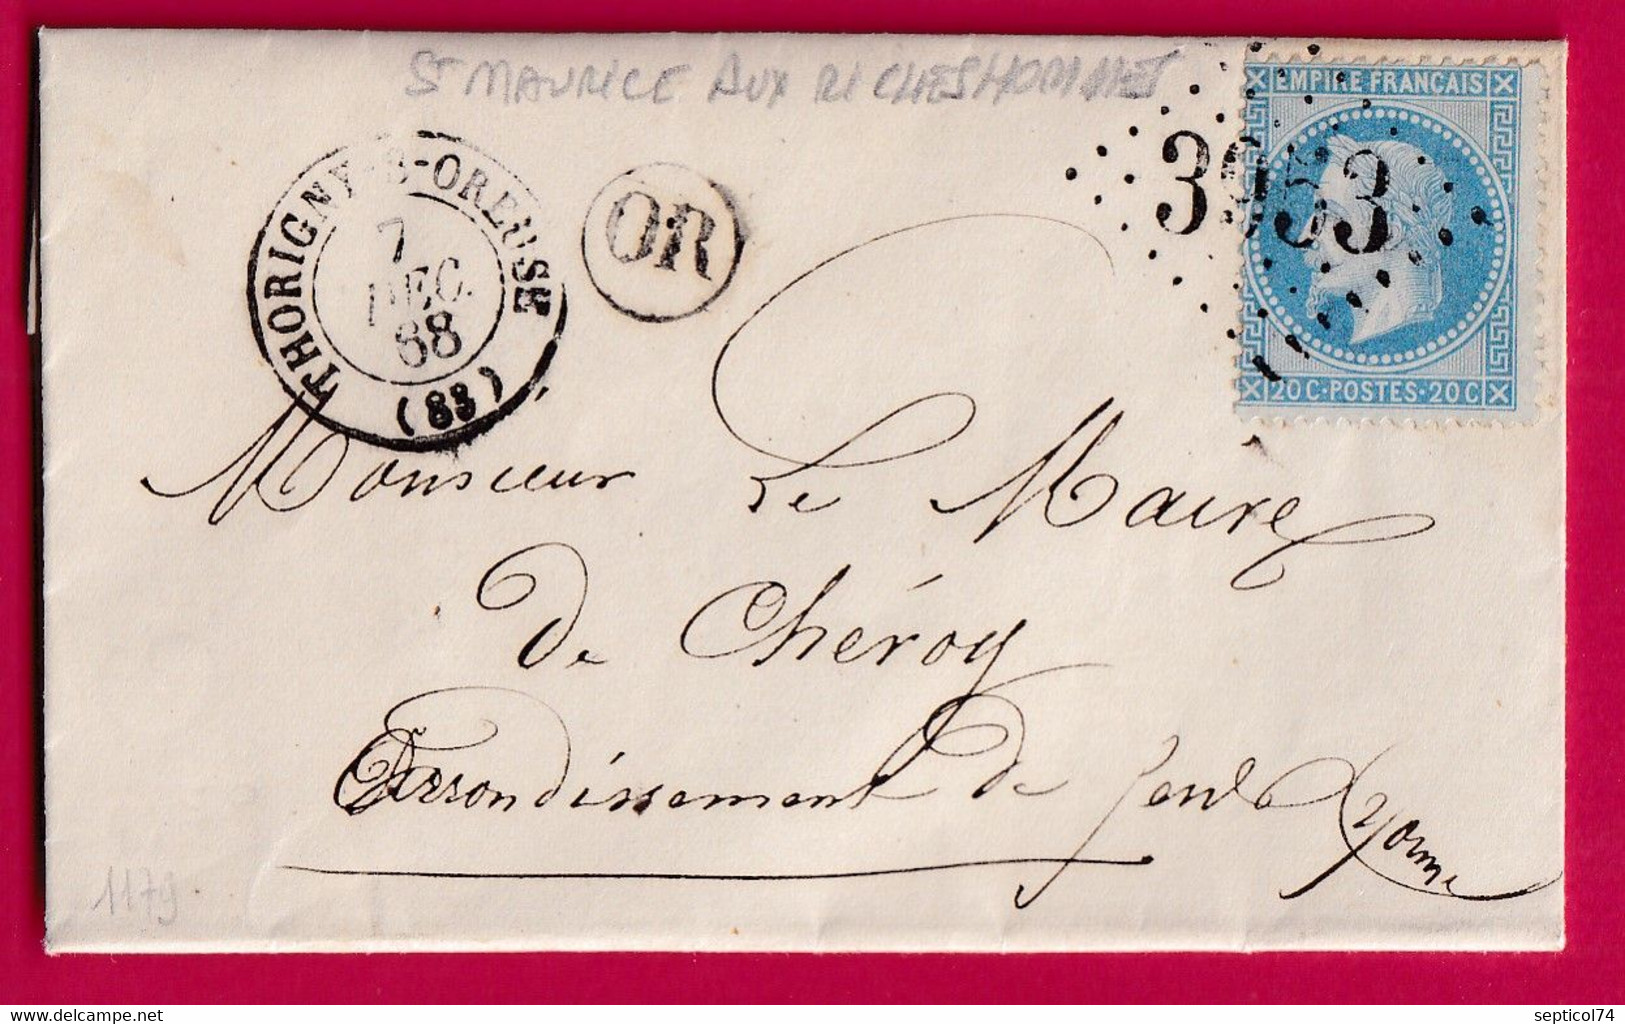 ST MAURICE AUX RICHES HOMMES
THORIGNY-S-OREUSE
7
DEC.
68
(83)
OR
3953
EMPIRE FRANÇAIS
20C·POSTES·20C
Monsieur Le Maire
de Chéroy
Arrondissement de Sens Yonne
1179
delcampe.net
septicol74